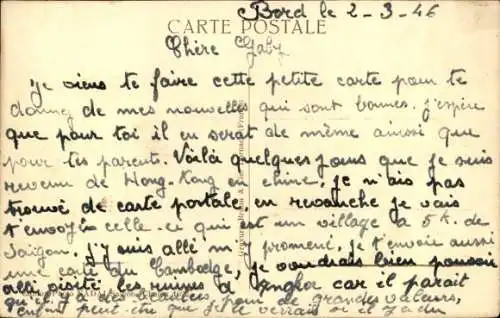 Bord le 2-3-46
CARTE POSTALE
Chère Gaby
Je viens te faire cette petite carte pour te
donner de mes nouvelles qui sont bonnes. j'espère
que pour toi il en serat de même ainssi que
pour tes parents. Voilà quelques jours que je suis
revenu de Hong-Kong en chine, je n'ais pas
trouvé de carte portale, en revanche je vais
t'envoyer celle-ci qui est un village à 5k. de
Saïgon, j'y suis allé m'y promené, je t'envoie aussi
une carte du Cambodge, je voudrais bien pouvoir
allé visité les ruines d'Angkor car il parait
qu'il y a des de grandes valeurs,
enfint peut-être que je le verrais